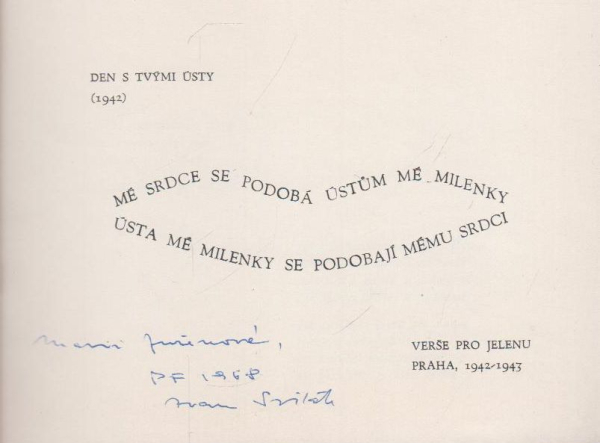 DEN S TVÝMI ÚSTY
(1942)
MÉ SRDCE SE PODOBÁ ÚSTŮM MÉ MILENKY
ÚSTA MÉ MILENKY SE PODOBAJÍ MÉMU SRDCI
VERŠE PRO JELENU
PRAHA, 1942-1943
Marii Juřinové,
PF 1968
Ivan Sviták